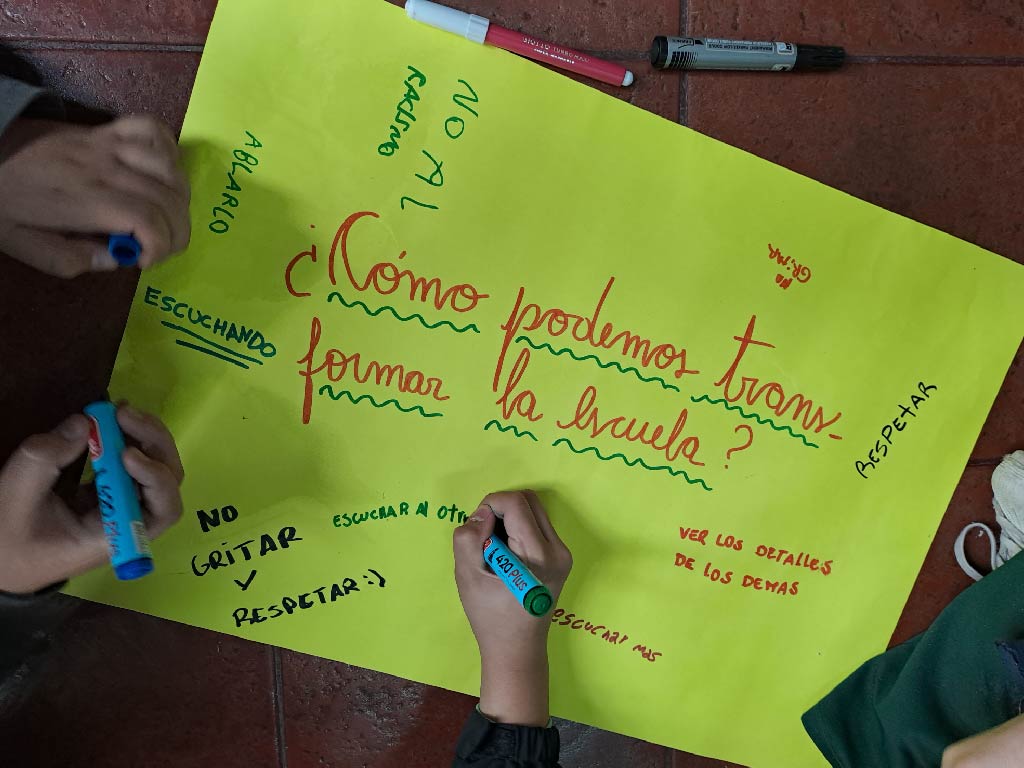 NO AL
RACISMO
ABLARLO
¿Cómo podemos trans-
formar la escuela?
ESCUCHANDO
RESPETAR
NO
GRITAR
Y
RESPETAR :)
ESCUCHAR AL otr
VER LOS DETALLES
DE LOS DEMAS
escuchar mas
L420 PLUS